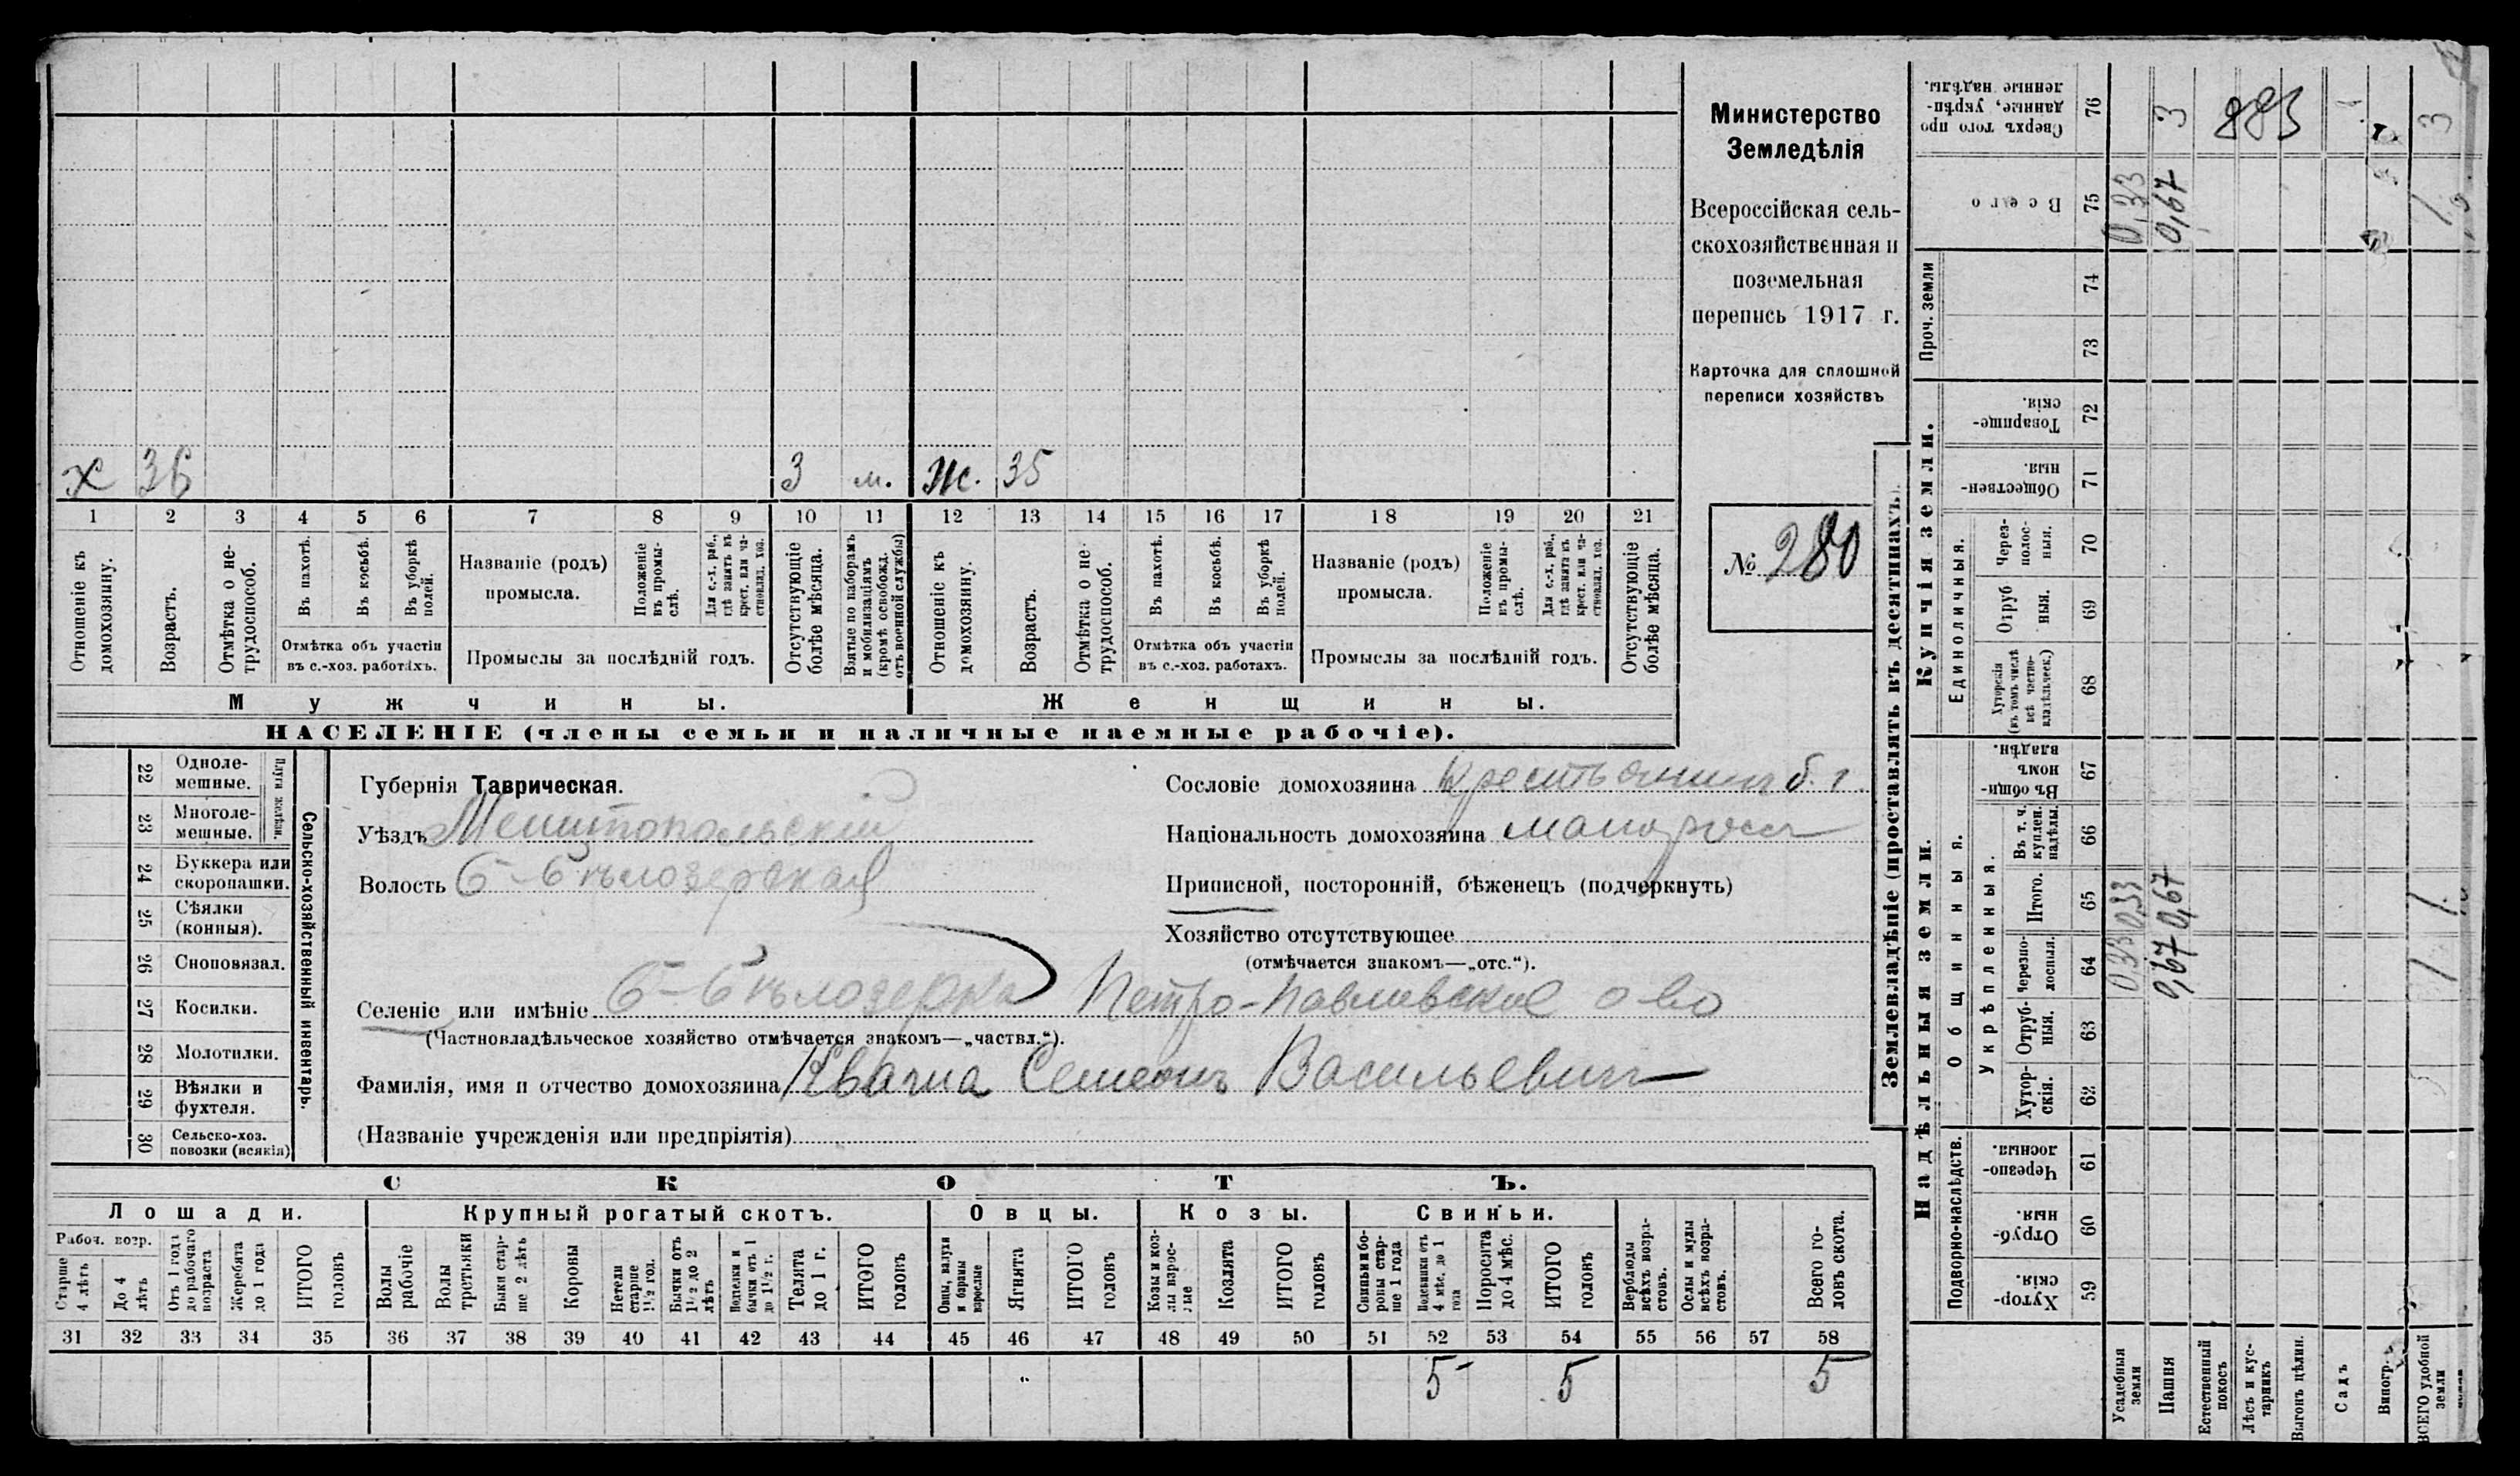 х 36 3 м. ж. 35
1 2 3 4 5 6 7 8 9 10 11 12 13 14 15 16 17 18 19 20 21
Отношеніе къ домохозяину.
Возрастъ.
Отмѣтка о не-трудоспособ.
Въ пахотѣ.
Въ косьбѣ.
Въ уборкѣ полей.
Отмѣтка объ участіи
въ с.-хоз. работахъ.
Названіе (родъ)
промысла.
Положеніе въ промы-слѣ.
Для с.-х. раб., гдѣ занятъ въ крест. или ча-стновлад. хоз.
Промыслы за послѣдній годъ.
Отсутствующіе болѣе мѣсяца.
Взятые по наборамъ и мобилизаціямъ (кромѣ освобожд. отъ военной службы)
Отношеніе къ домохозяину.
Возрастъ.
Отмѣтка о не-трудоспособ.
Въ пахотѣ.
Въ косьбѣ.
Въ уборкѣ полей.
Отмѣтка объ участіи
въ с.-хоз. работахъ.
Названіе (родъ)
промысла.
Положеніе въ промы-слѣ.
Для с.-х. раб., гдѣ занятъ въ крест. или ча-стновлад. хоз.
Промыслы за послѣдній годъ.
Отсутствующіе болѣе мѣсяца.
Мужчины. Женщины.
НАСЕЛЕНІЕ (члены семьи и наличные наемные рабочіе).
Министерство
Земледѣлія
Всероссійская сель-
скохозяйственная и
поземельная
перепись 1917 г.
Карточка для сплошной
переписи хозяйствъ
№ 280
22 Однолемешные.
23 Многолемешные.
Плуги желѣзн.
24 Буккера или скоропашки.
25 Сѣялки (конныя).
26 Сноповязал.
27 Косилки.
28 Молотилки.
29 Вѣялки и фухтеля.
30 Сельско-хоз. повозки (всякія)
Сельско-хозяйственный инвентарь.
Губернія Таврическая.
Уѣздъ Мелитопольскій
Волость Б-Бѣлозерская
Селеніе или имѣніе Б-Бѣлозерка Петро-Павловское о-во
(Частновладѣльческое хозяйство отмѣчается знакомъ—„частвл.“).
Фамилія, имя и отчество домохозяина Квагна Семенъ Васильевич
(Названіе учрежденія или предпріятія)
Сословіе домохозяина Крестьянинъ б. г.
Національность домохозяина малоросъ
Приписной, посторонній, бѣженецъ (подчеркнуть)
Хозяйство отсутствующее
(отмѣчается знакомъ—„отс.“).
СКОТЪ.
Лошади. Крупный рогатый скотъ. Овцы. Козы. Свиньи.
Рабоч. возр.
Старше 4 лѣтъ
До 4 лѣтъ
Отъ 1 года до рабочаго возраста
Жеребята до 1 года
ИТОГО головъ
Волы рабочіе
Волы третьяки
Быки стар-ше 2 лѣтъ
Коровы
Нетели старше 1½ год.
Бычки отъ 1½ до 2 лѣтъ
Подтелки и бычки отъ 1 до 1½ г.
Телята до 1 г.
ИТОГО головъ
Овцы, валухи и бараны взрослые
Ягнята
ИТОГО головъ
Козы и коз-лы взрос-лые
Козлята
ИТОГО головъ
Свиньи и бо-ровы стар-ше 1 года
Подсвинки отъ 4 мѣс. до 1 года
Поросята до 4 мѣс.
ИТОГО головъ
Верблюды всѣхъ возра-стовъ.
Ослы и мулы всѣхъ возра-стовъ.
Всего го-ловъ скота.
31 32 33 34 35 36 37 38 39 40 41 42 43 44 45 46 47 48 49 50 51 52 53 54 55 56 57 58
5 5 5
Землевладѣніе (проставлять въ десятинахъ).
Надѣльныя земли. Купчія земли.
Подворно-наслѣдств. Общинныя. Укрѣпленныя. Единоличныя. Проч. земли
59 Хутор-скія.
60 Отруб-ныя.
61 Черезпо-лосныя.
62 Хутор-скія.
63 Отруб-ныя.
64 Черезпо-лосныя.
65 Итого.
66 Въ т. ч. куплен. надѣлы.
67 Въ общин-номъ владѣн.
68 Хуторскія (въ томъ числѣ всѣ частно-владѣльческ.)
69 Отруб-ныя.
70 Через-полос-ныя.
71 Обществен-ныя.
72 Товарище-скія.
73
74
75 Всего
76 Сверхъ того про-данные, укрѣп-ленные надѣлы.
Усадебныя земли 0,33 0,33 0,33
Пашня 0,67 0,67 0,67 3
Естественный покосъ
Лѣсъ и кус-тарникъ
Выгонъ цѣлин.
Садъ
Виногр.
ВСЕГО удобной земли 1 1. 1 3
883